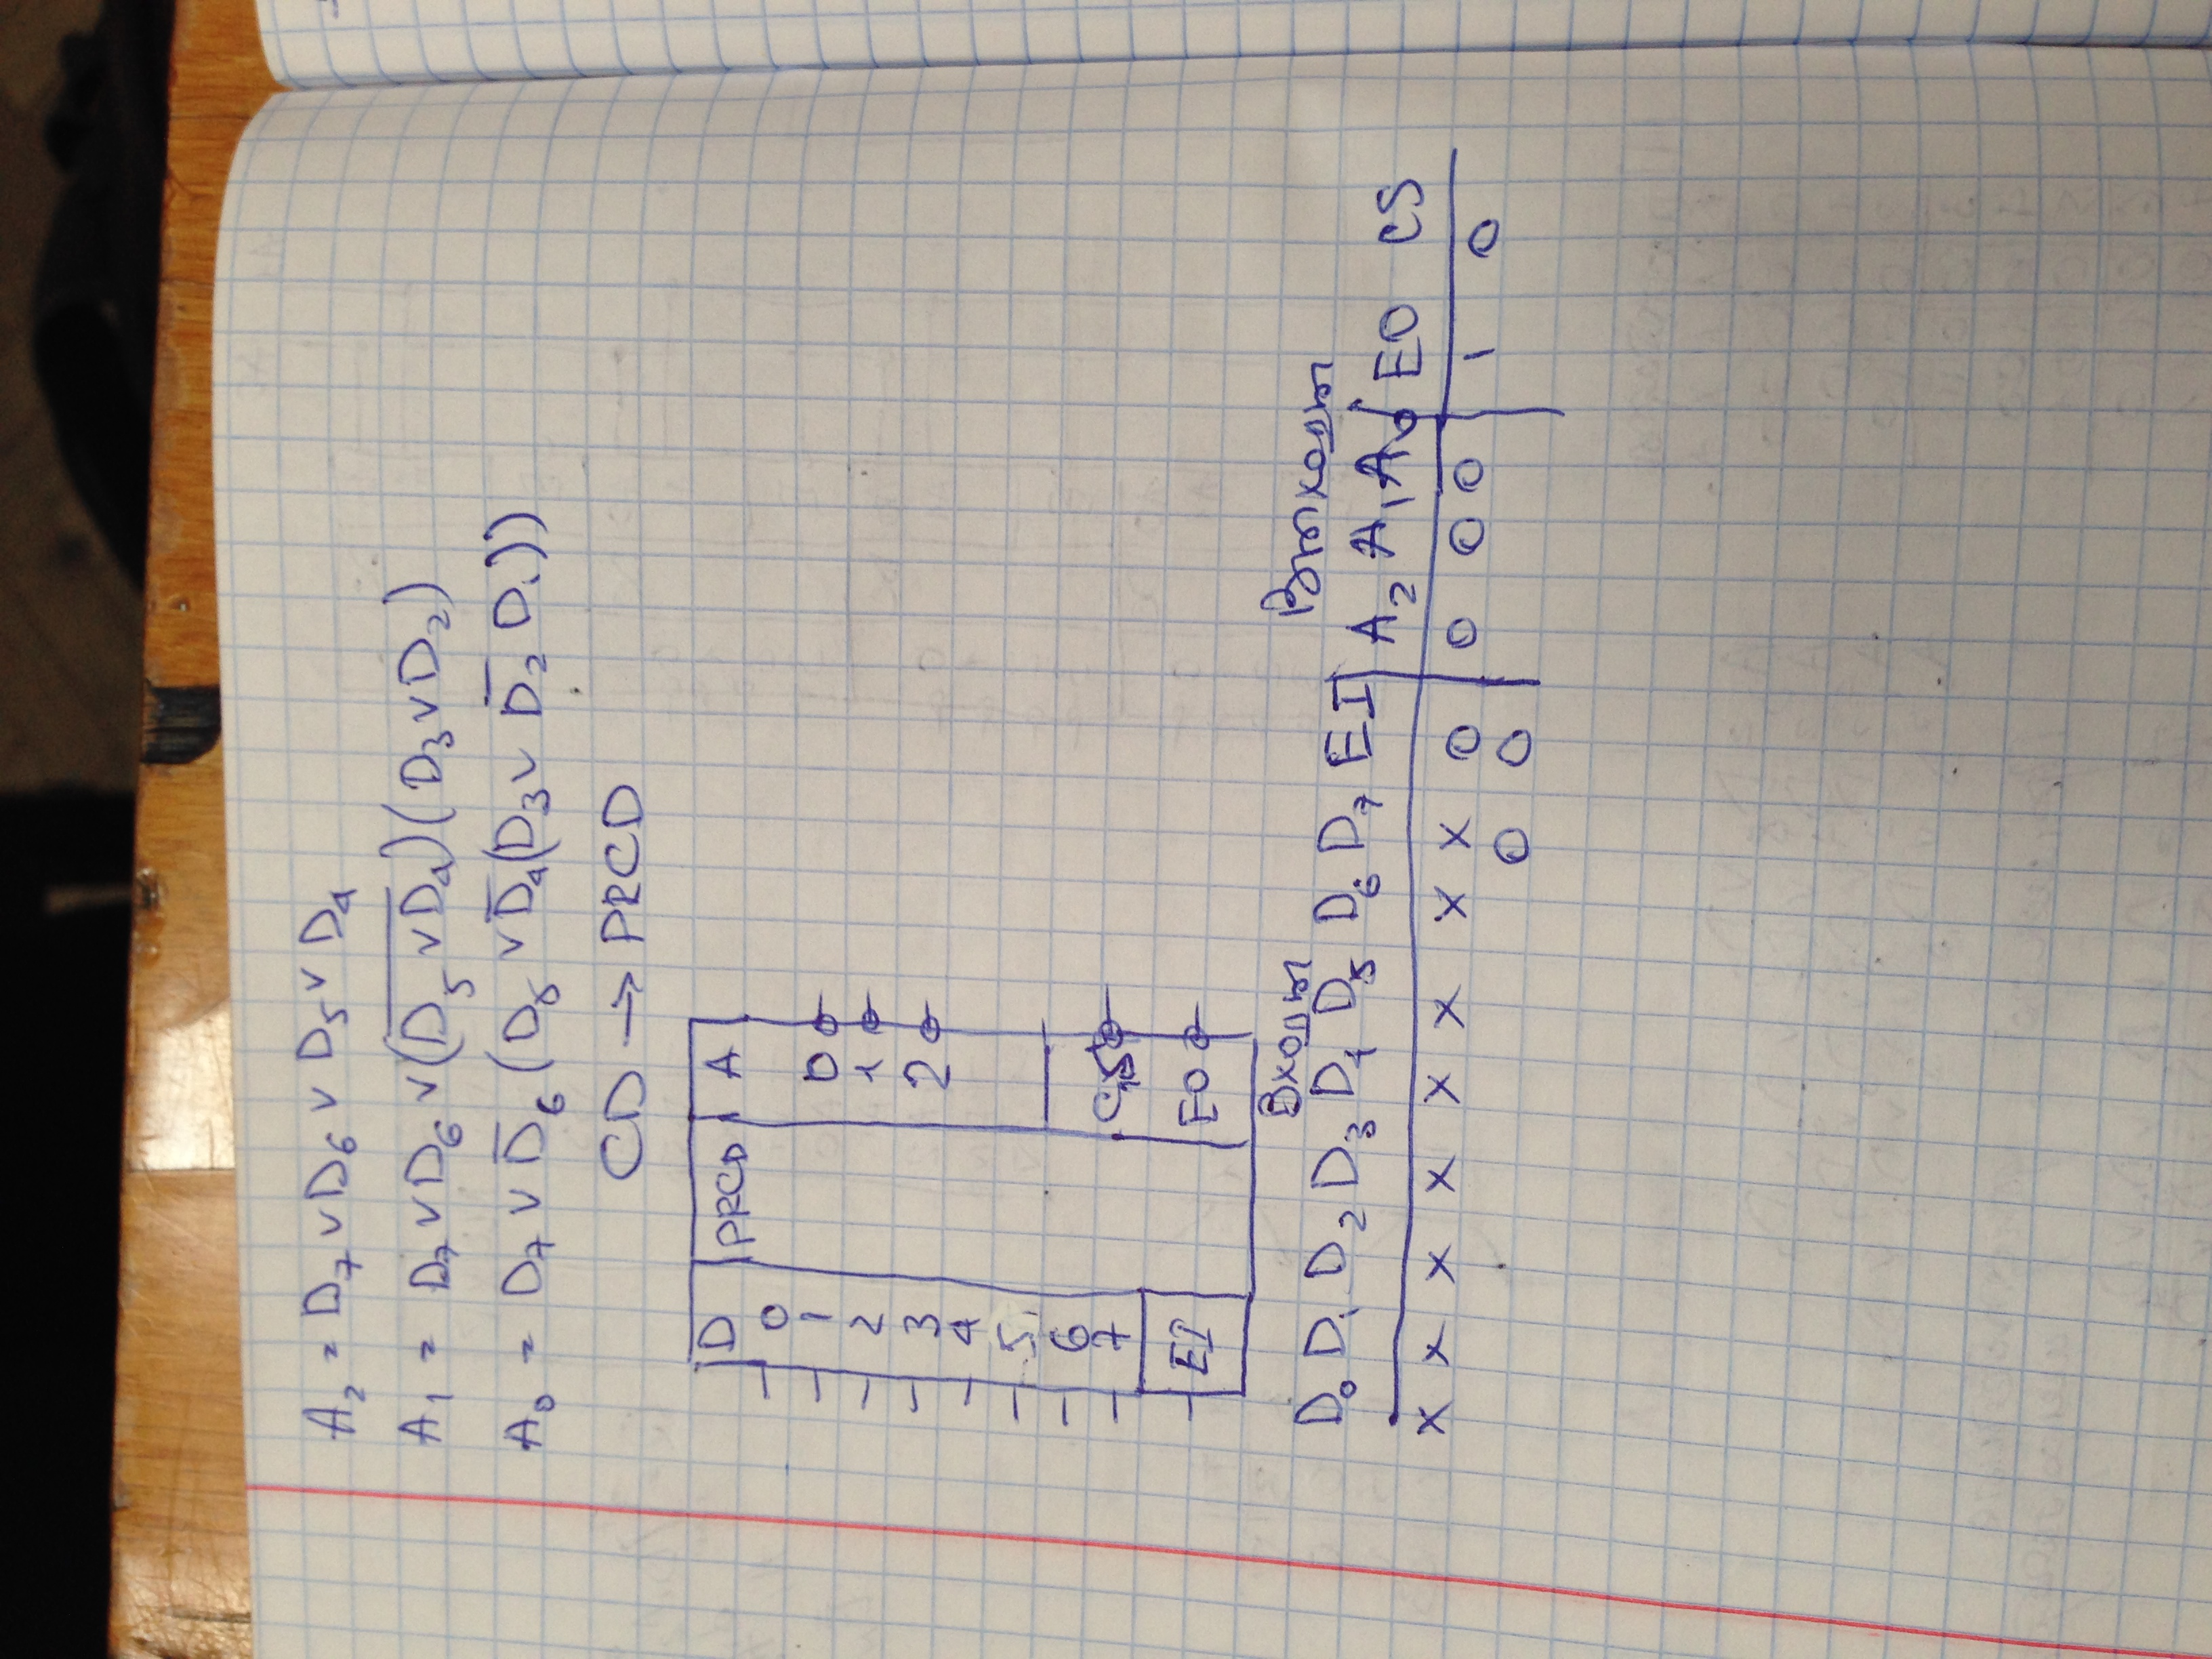 A₂ = D₇ ∨ D₆ ∨ D₅ ∨ D₄
A₁ = D₇ ∨ D₆ ∨ (D̅₅̅ ̅∨̅ ̅D̅₄̅)(D₃ ∨ D₂)
A₀ = D₇ ∨ D̅₆(D₅ ∨ D̅₄(D₃ ∨ D̅₂ D₁))
CD → PRCD
D PRCD A
0
1 0
2 1
3 2
4
5
6
7 CS
EI EO
Входы Выходы
D₀ D₁ D₂ D₃ D₄ D₅ D₆ D₇ EI A₂ A₁ A₀ EO CS
x x x x x x x x 0 0 0 0 1 0
0 0